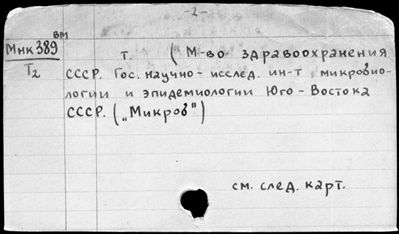 -2-
ВМ
Мнк 389
Т2
т. ( М-во здравоохранения
СССР. Гос. научно-исслед. ин-т микробио-
логии и эпидемиологии Юго-Востока
СССР. („Микроб")
см. след. карт.